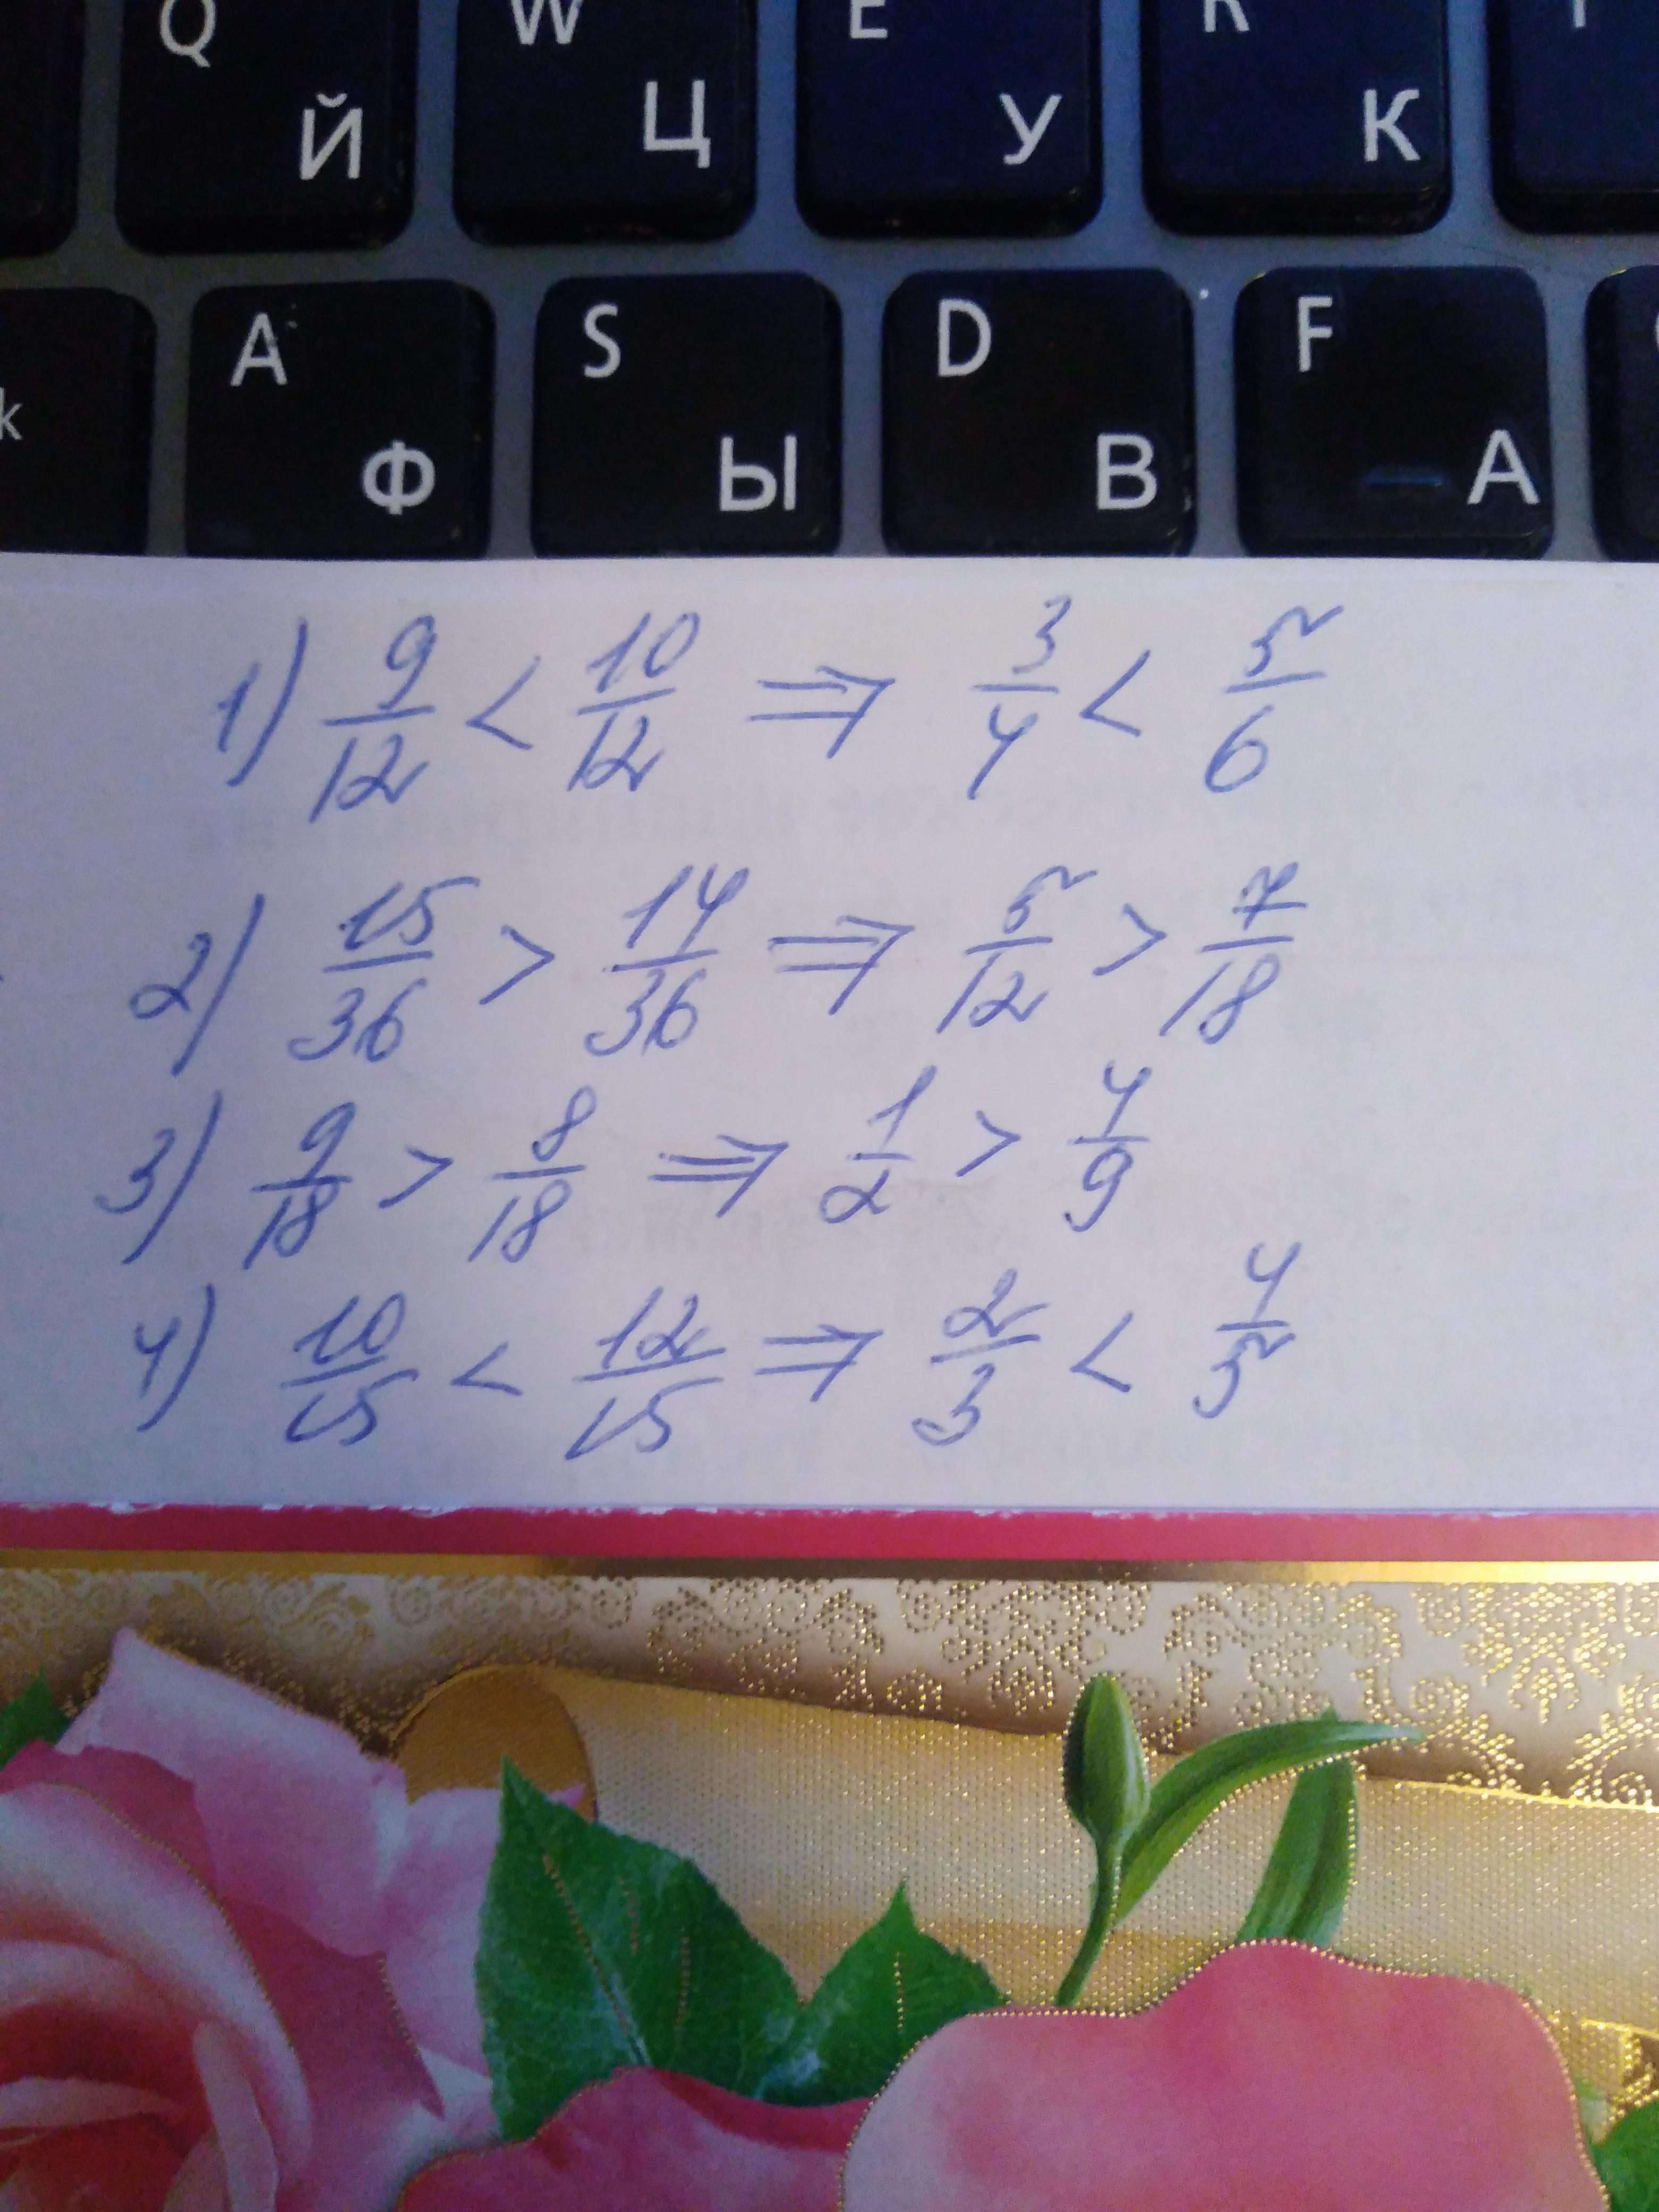 Q W E R
Й Ц У К
A S D F
k Ф Ы В А
1) 9/12 < 10/12 ⇒ 3/4 < 5/6
2) 15/36 > 14/36 ⇒ 5/12 > 7/18
3) 9/18 > 8/18 ⇒ 1/2 > 4/9
4) 10/15 < 12/15 ⇒ 2/3 < 4/5